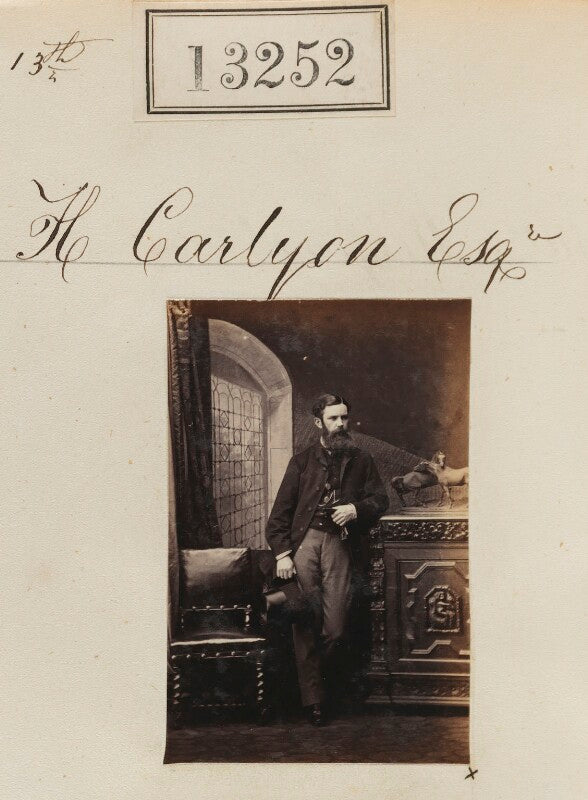 13th
13252
H Carlyon Esqre
x